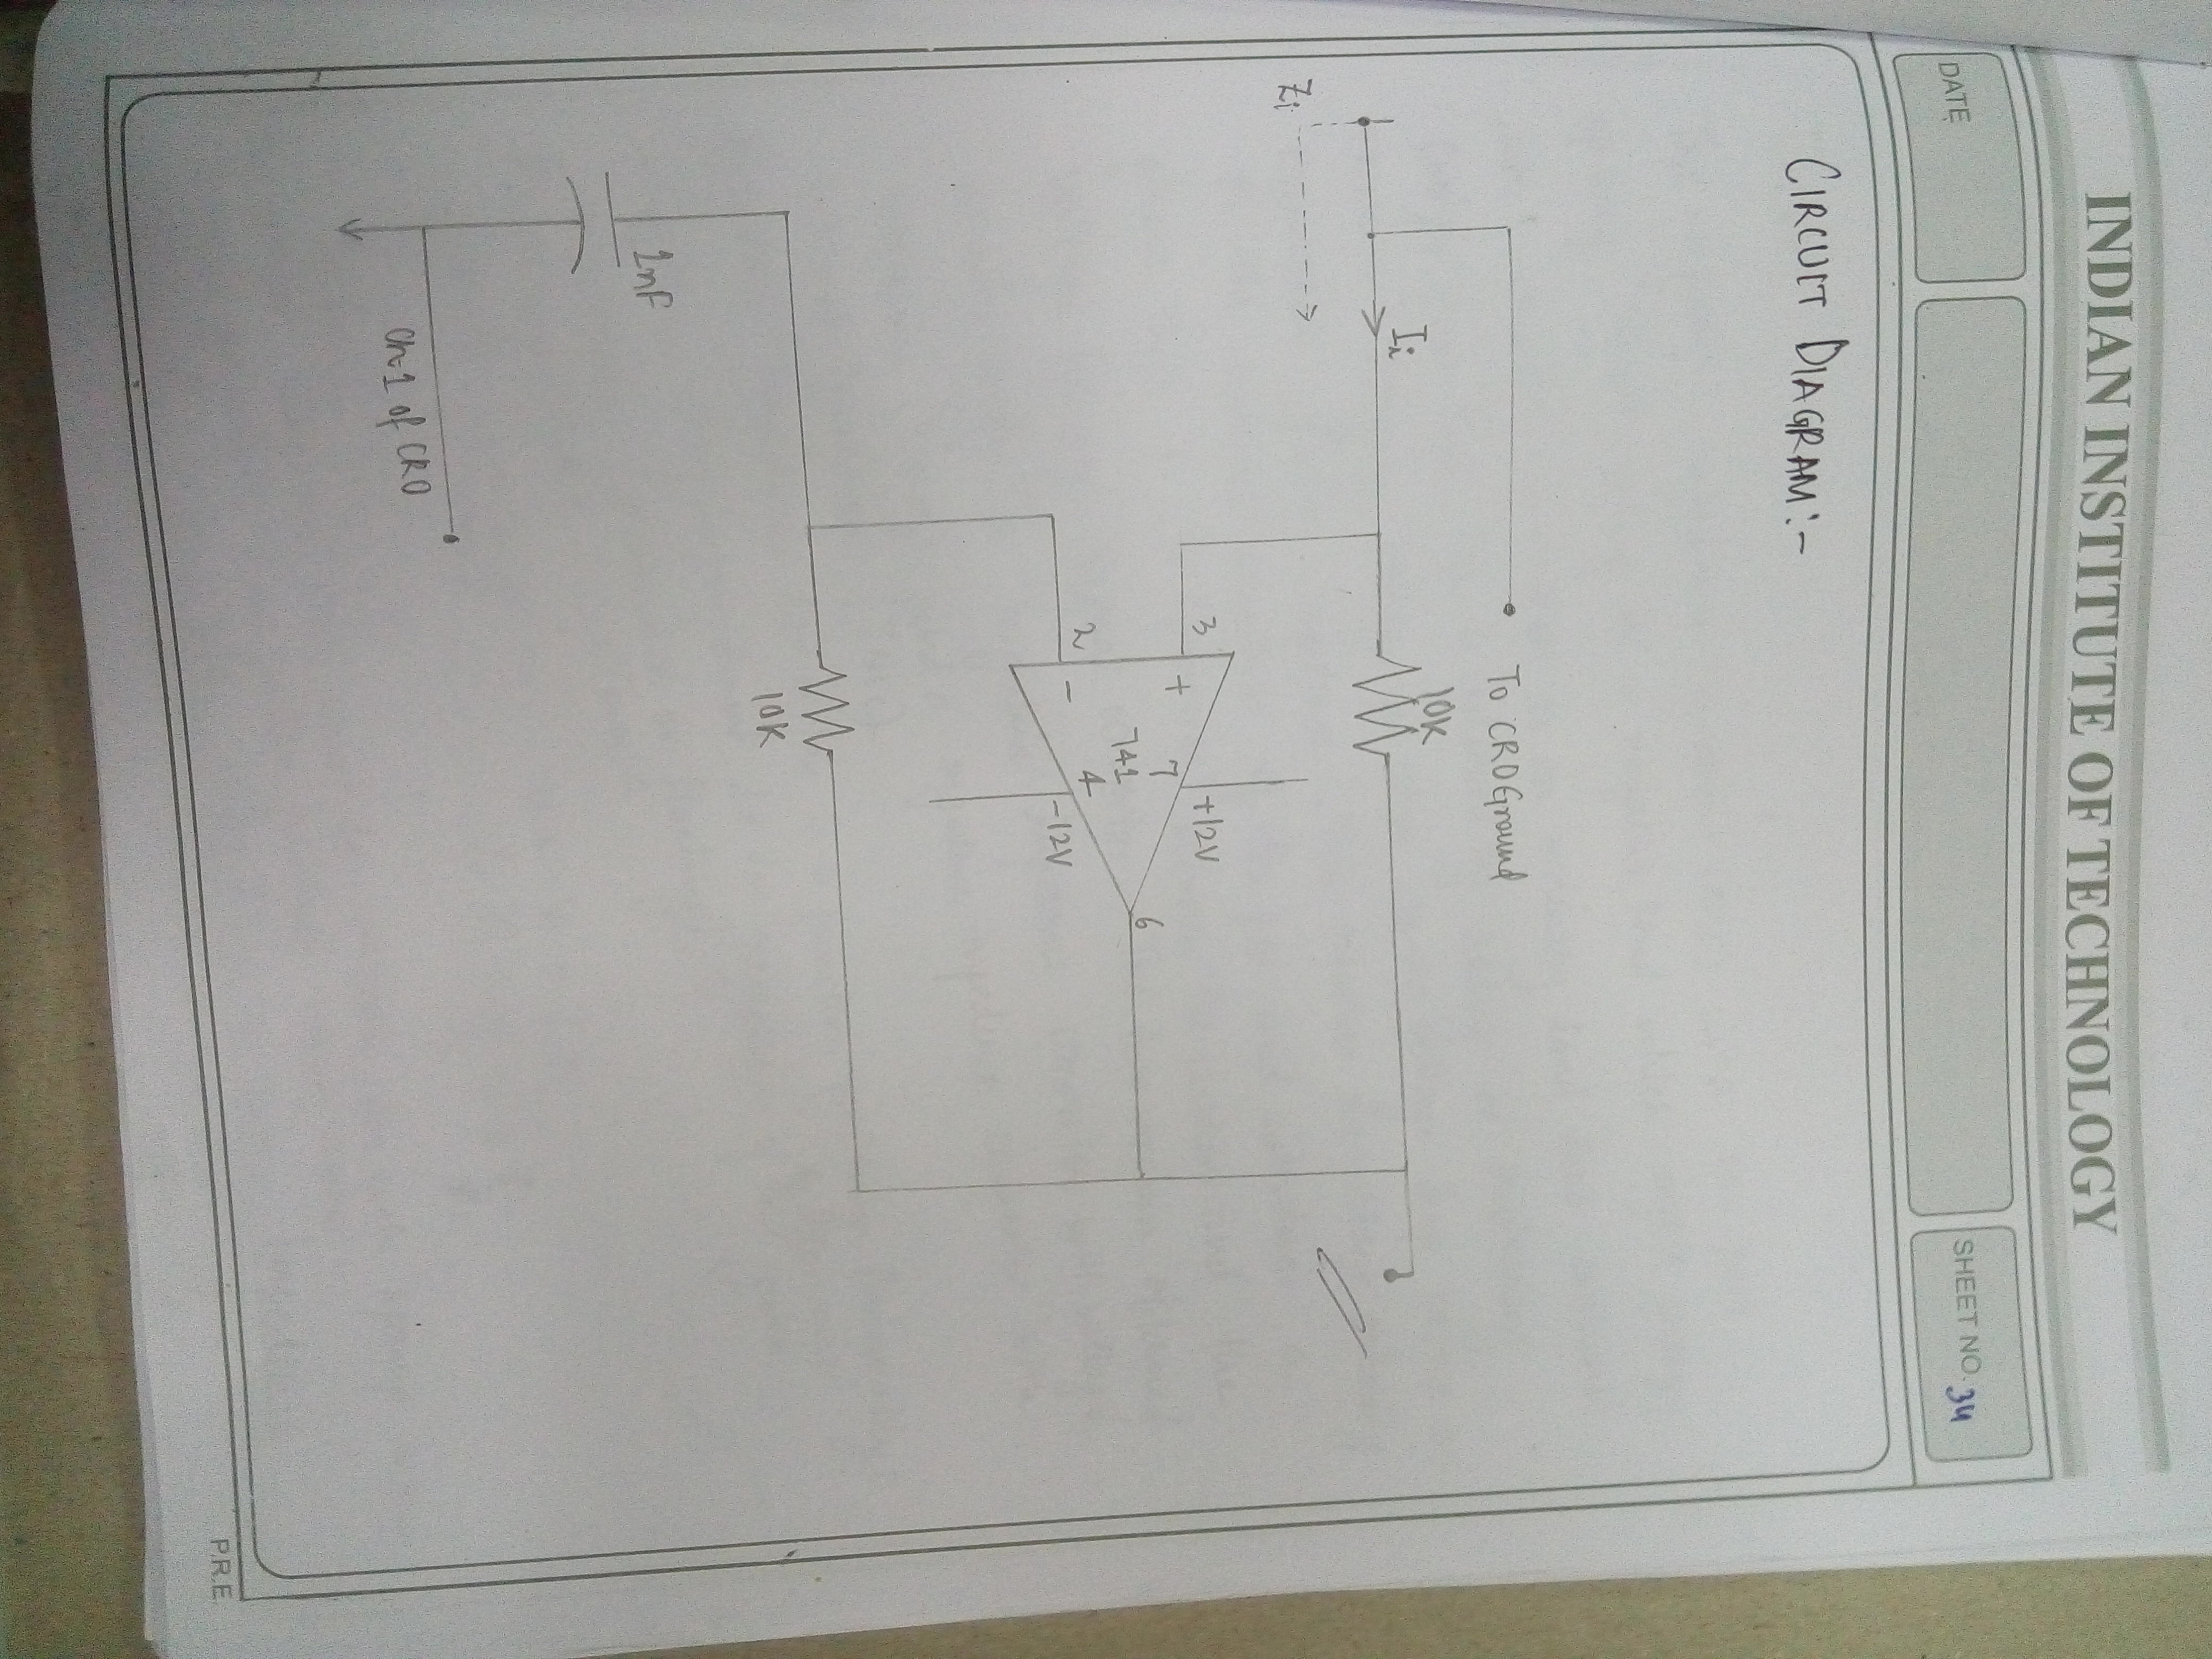 INDIAN INSTITUTE OF TECHNOLOGY
DATE
SHEET NO. 34
CIRCUIT DIAGRAM:-
To CRO Ground
10K
Ii
Zi
3
+
7
+12V
741
6
2
-
4
-12V
10K
1nF
Ch-1 of CRO
P.R.E.